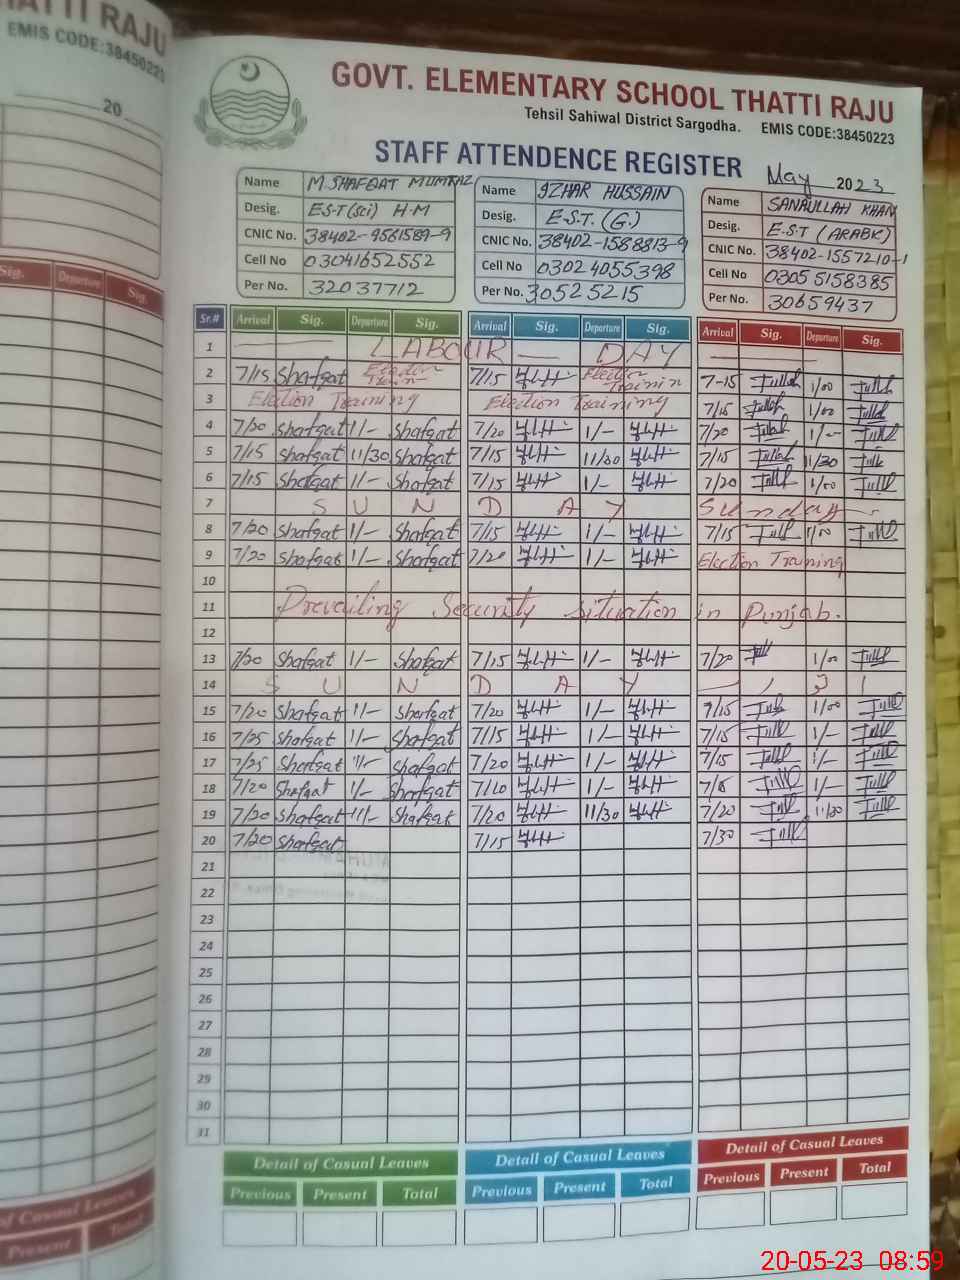 HATTI RAJU
EMIS CODE:38450223
20
GOVT. ELEMENTARY SCHOOL THATTI RAJU
Tehsil Sahiwal District Sargodha. EMIS CODE:38450223
STAFF ATTENDENCE REGISTER May 2023
Name M. SHAFQAT MUMTAZ Name IZHAR HUSSAIN Name SANAULLAH KHAN
Desig. E.S.T (Sci) H.M Desig. E.S.T. (G.) Desig. E.S.T (ARABK)
CNIC No. 38402-9561589-9 CNIC No. 38402-1588813-9 CNIC No. 38402-1557210-1
Cell No 03041652552 Cell No 03024055398 Cell No 03055158385
Per No. 32037712 Per No. 30525215 Per No. 30659437
Sr.# Arrival Sig. Departure Sig. Arrival Sig. Departure Sig. Arrival Sig. Departure Sig.
1 LABOUR — DAY
2 7/15 Shafqat Election Train 7/15 Election Trainin 7-15 1/00
3 Election Training Election Training 7/15 1/00
4 7/20 Shafqat 1/- Shafqat 7/20 1/- 7/20 1/-
5 7/15 Shafqat 11/30 Shafqat 7/15 11/30 7/15 11/30
6 7/15 Shafqat 1/- Shafqat 7/15 1/- 7/20 1/00
7 SUNDAY Sunday
8 7/20 Shafqat 1/- Shafqat 7/15 1/- 7/15 1/00
9 7/20 Shafqat 1/- Shafqat 7/20 1/- Election Training
10
11 Prevailing Security situation in Punjab.
12
13 7/20 Shafqat 1/- Shafqat 7/15 1/- 7/20 1/00
14 SUNDAY
15 7/20 Shafqat 1/- Shafqat 7/20 1/- 7/15 1/00
16 7/25 Shafqat 1/- Shafqat 7/15 1/- 7/15 1/-
17 7/25 Shafqat 1/- Shafqat 7/20 1/- 7/15 1/-
18 7/20 Shafqat 1/- Shafqat 7/10 1/- 1/-
19 7/20 Shafqat 11/- Shafqat 7/20 11/30 7/20 11/30
20 7/20 Shafqat 7/15 7/30
21
22
23
24
25
26
27
28
29
30
31
Detail of Casual Leaves Detail of Casual Leaves Detail of Casual Leaves
Previous Present Total Previous Present Total Previous Present Total
20-05-23 08:59